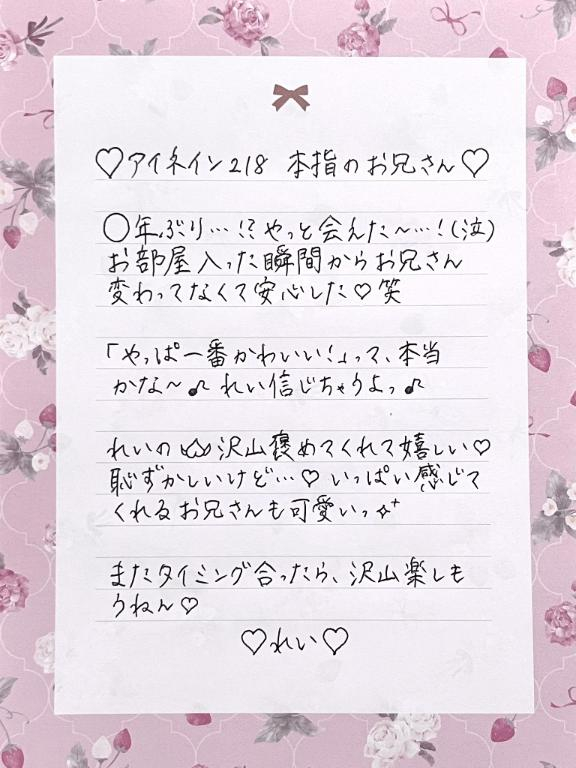 ♡アイネイン218 本指のお兄さん♡
○年ぶり…!?やっと会えた〜…!(泣)
お部屋入った瞬間からお兄さん
変わってなくて安心した♡笑
「やっぱ一番かわいい!」って、本当
かな〜♪れい信じちゃうよっ♪
れいの 沢山褒めてくれて嬉しい♡
恥ずかしいけど…♡いっぱい感じて
くれるお兄さんも可愛いっ✧⁺
またタイミング合ったら、沢山楽しも
うねん♡
♡れい♡